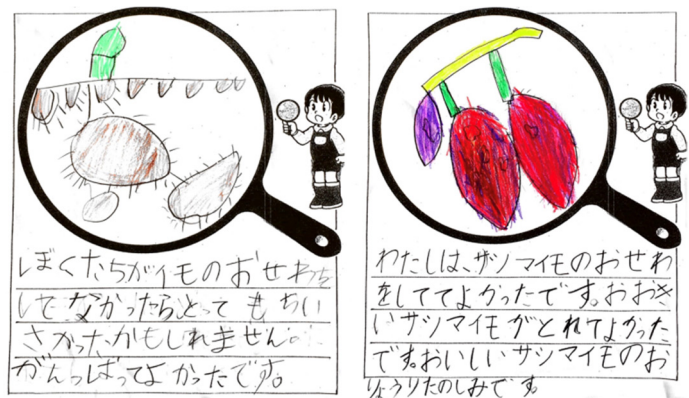 ぼくたちがイモのおせわを
してなかったらとってもちい
さかったかもしれません。
がんっばってよかったです。
わたしは、サツマイモのおせわ
をしててよかったです。おおき
いサツマイモがとれてよかった
です。おいしいサツマイモのお
りょうりたのしみです。